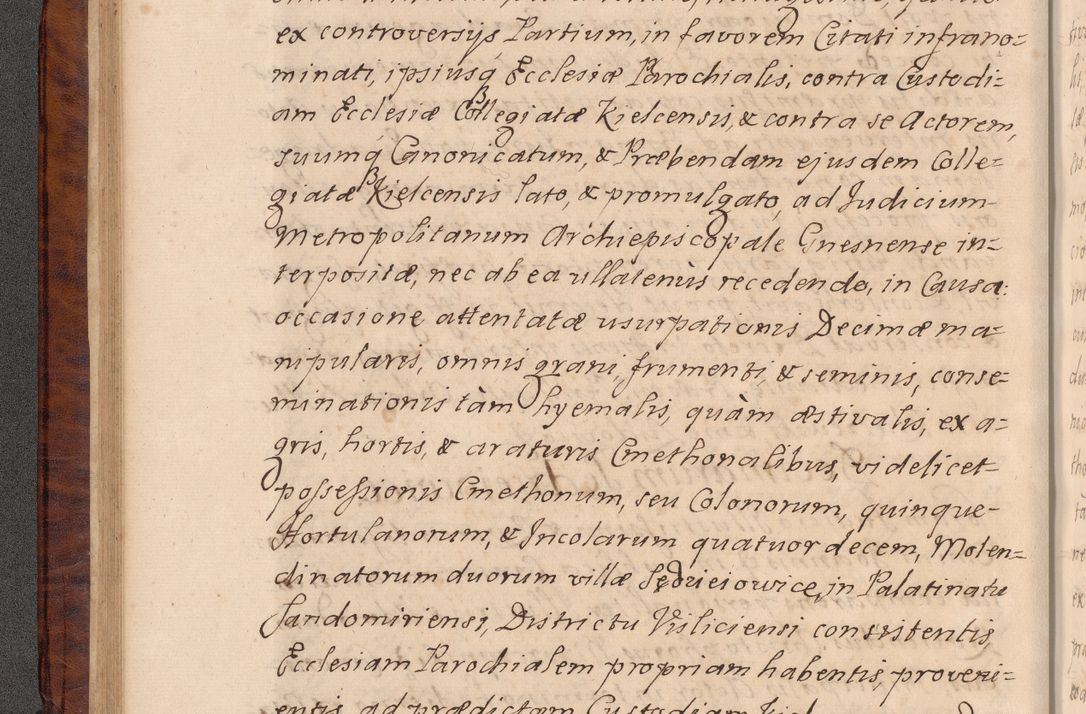 ex controversijs Partium, in favorem Citati infrano=
minati, ipsiusq Ecclesiæ Parochialis, contra Custodi=
am Ecclesiæ Collegiatæ Kielcensis, & contra se Actorem,
suumq Canonicatum, & Præbendam ejusdem Colle=
giatæ Kielcensis lato, & promulgato, ad Judicium
Metropolitanum Archiepiscopale Gnesnense in=
terpositæ, nec ab ea ullatenùs recedendo, in Causa
occasione attentatæ usurpationis Decimæ ma=
nipularis, omnis grani, frumenti, & seminis, conse=
minationis tàm hyemalis, quàm æstivalis, ex a=
gris, hortis, & araturis Cmethonalibus, videlicet
possessionis Cmethonum, seu Colonorum, quinque
Hortulanorum, & Incolarum quatuordecem, Molen=
dinatorum duorum villæ Sędzieiowice, in Palatinatu
Sandomiriensi, Districtu Visliciensi consistentis,
Ecclesiam Parochialem propriam habentis, proveni=
entis, ad prædictam Custodiam